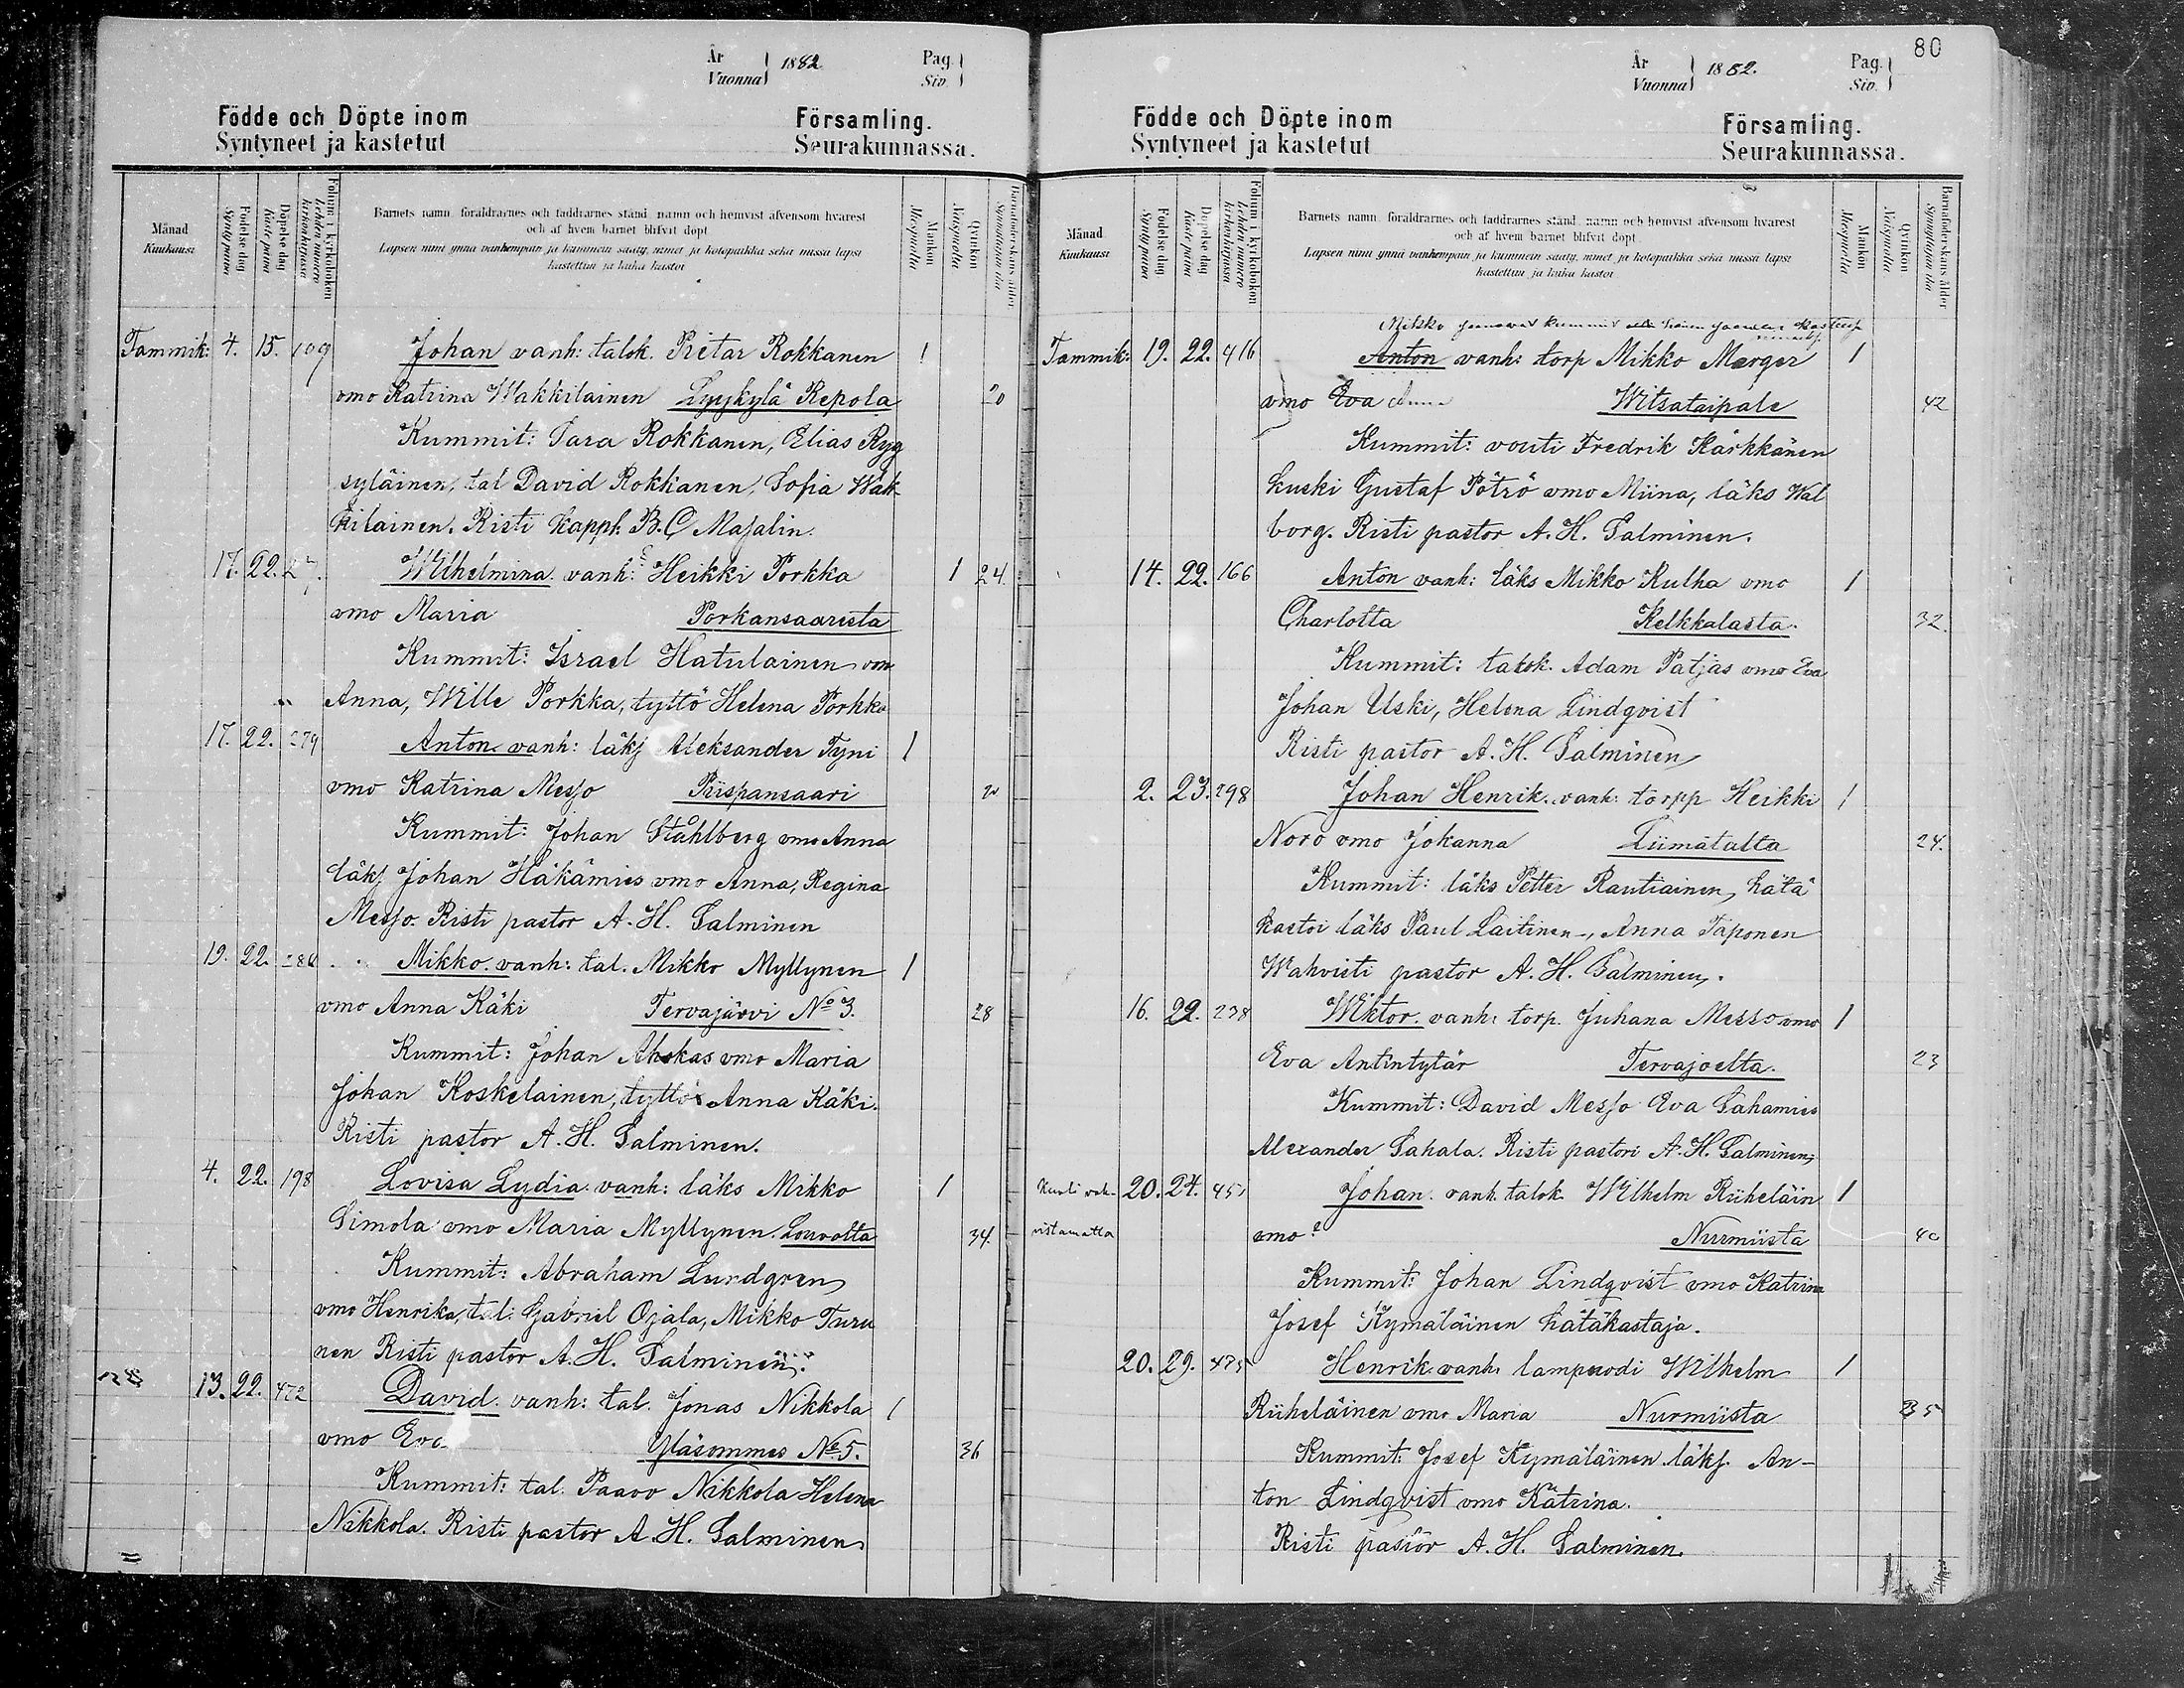 År
Vuonna
1882
Pag.
Siv.
Födde och Döpte inom Församling.
Syntyneet ja kastetut Seurakunnassa.
Månad
Kuukausi
Födelse dag
Synty päivä
Döpelse dag
Kaste päivä
Folium i kyrkoboken
Lehden numero kirkonkirjassa
Barnets namn, föräldrarnes och faddrarnes stånd, namn och hemvist äfvensom hvarest
och af hvem barnet blifvit döpt
Lapsen nimi ynnä vanhempain ja kummein sääty, nimet ja kotopaikka sekä missä lapsi
kastettiin ja kuka kastoi
Mankön
Miespuolia
Qvinkön
Naispuolia
Barnaföderskans ålder
Tammik: 4. 15. 109 Johan vanh: talok. Pietar Rokkanen 1
vmo Katrina Wakkilainen Lyykylä Repola 20
Kummit: Sara Rokkanen, Elias Ryy
syläinen, tal David Rokkanen, Sofia Wak
kilainen. Risti kapph. B. C Masalin.
17. 22. Wilhelmina. vanh: Heikki Porkka 1 24.
vmo Maria Porkansaarista
Kummit: Israel Hatulainen vmo
Anna, Wille Porkka, tyttö Helena Porkka
17. 22. 279 Anton vanh: läksj Aleksander Tyni 1
vmo Katrina Messo Piispansaari
Kummit: Johan Ståhlberg vmo Anna
läksj Johan Häkämies vmo Anna, Regina
Messo. Risti pastor A. H. Salminen
19. 22. Mikko. vanh: tal. Mikko Myllynen 1
vmo Anna Käki Tervajärvi No 3. 28
Kummit: Johan Ahokas vmo Maria
Johan Koskelainen, tyttö Anna Käki.
Risti pastor A. H. Salminen.
4. 22. 198 Lovisa Lydia. vanh: läks Mikko 1
Simola vmo Maria Myllynen. Louvolta 34.
Kummit: Abraham Lundgren
vmo Henrika, tal: Gabriel Ojala, Mikko Turu
nen Risti pastor A. H. Salminen.
13. 22. 472 David. vanh: tal. Jonas Nikkola 1
vmo Eva Yläsommee No. 5. 36
Kummit: tal. Paavo Nikkola Helena
Nikkola. Risti pastor A. H. Salminen
80
År
Vuonna
1882.
Pag.
Siv.
Födde och Döpte inom Församling.
Syntyneet ja kastetut Seurakunnassa.
Månad
Kuukausi
Födelse dag
Synty päivä
Döpelse dag
Kaste päivä
Folium i kyrkoboken
Lehden numero kirkonkirjassa
Barnets namn, föräldrarnes och faddrarnes stånd, namn och hemvist äfvensom hvarest
och af hvem barnet blifvit döpt
Lapsen nimi ynnä vanhempain ja kummein sääty, nimet ja kotopaikka sekä missä lapsi
kastettiin ja kuka kastoi
Mankön
Miespuolia
Qvinkön
Naispuolia
Barnaföderskans ålder
Mikko kummit
Tammik: 19. 22. 416 Anton vanh: torp Mikko Marger 1
vmo Eva Anna Witsataipale 42
Kummit: vouti Fredrik Kärkkänen
kuski Gustaf Pötrö vmo Miina, läks Wal
borg. Risti pastor A. H. Salminen.
14. 22. 166 Anton vanh: läks Mikko Kulha vmo 1
Charlotta Kelkkalasta. 32.
Kummit: talok. Adam Patjas vmo Eva
Johan Uski, Helena Lindqvist
Risti pastor A. H. Salminen
2. 23. 298 Johan Henrik. vanh: torpp Heikki 1
Noro vmo Johanna Liimatalta 24.
Kummit: läks Petter Rautiainen, hätä
kastoi läks Paul Laitinen, Anna Taponen
Wahvisti pastor A. H. Salminen.
16. 22. 238 Wiktor. vanh: torp. Juhana Messo vmo 1
Eva Antintytär Tervajoelta. 23
Kummit: David Messo Eva Sahamies
Alexander Sahala. Risti pastori A. H. Salminen
Kuoli vah- 20. 24. 451 Johan. vanh. talok. Wilhelm Riiheläin 1
vistamatta vmo? Nurmiista 40
Kummit: Johan Lindqvist vmo Katrina
Josef Kymäläinen hätäkastaja.
20. 29. 475 Henrik. vanh: lampuodi Wilhelm 1
Riiheläinen vmo Maria Nurmiista 35
Kummit: Josef Kymäläinen läksj. An-
ton Lindqvist vmo Katrina.
Risti pastor A. H. Salminen.